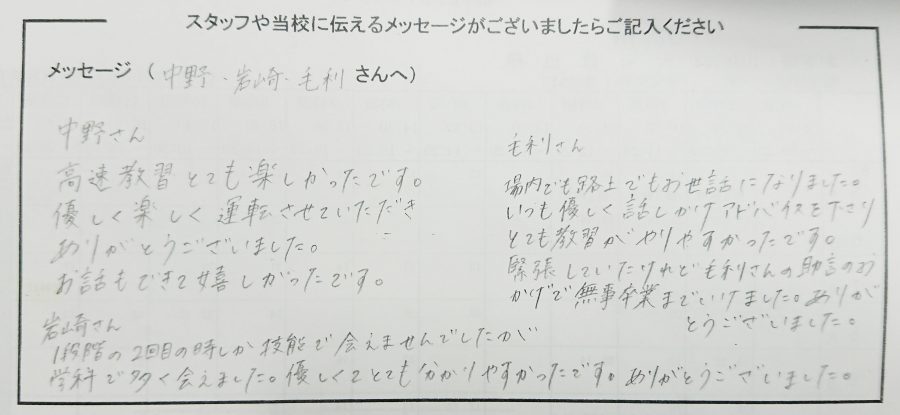 スタッフや当校に伝えるメッセージがございましたらご記入ください
メッセージ（中野・岩崎・毛利さんへ）
中野さん
高速教習とても楽しかったです。
優しく楽しく運転させていただき
ありがとうございました。
お話もできて嬉しかったです。
毛利さん
場内でも路上でもお世話になりました。
いつも優しく話しかけアドバイスを下さり
とても教習がやりやすかったです。
緊張していたけれど毛利さんの助言のお
かげで無事卒業までいけました。ありが
とうございました。
岩崎さん
1段階の2回目の時しか技能で会えませんでしたが
学科で多く会えました。優しくてとても分かりやすかったです。ありがとうございました。